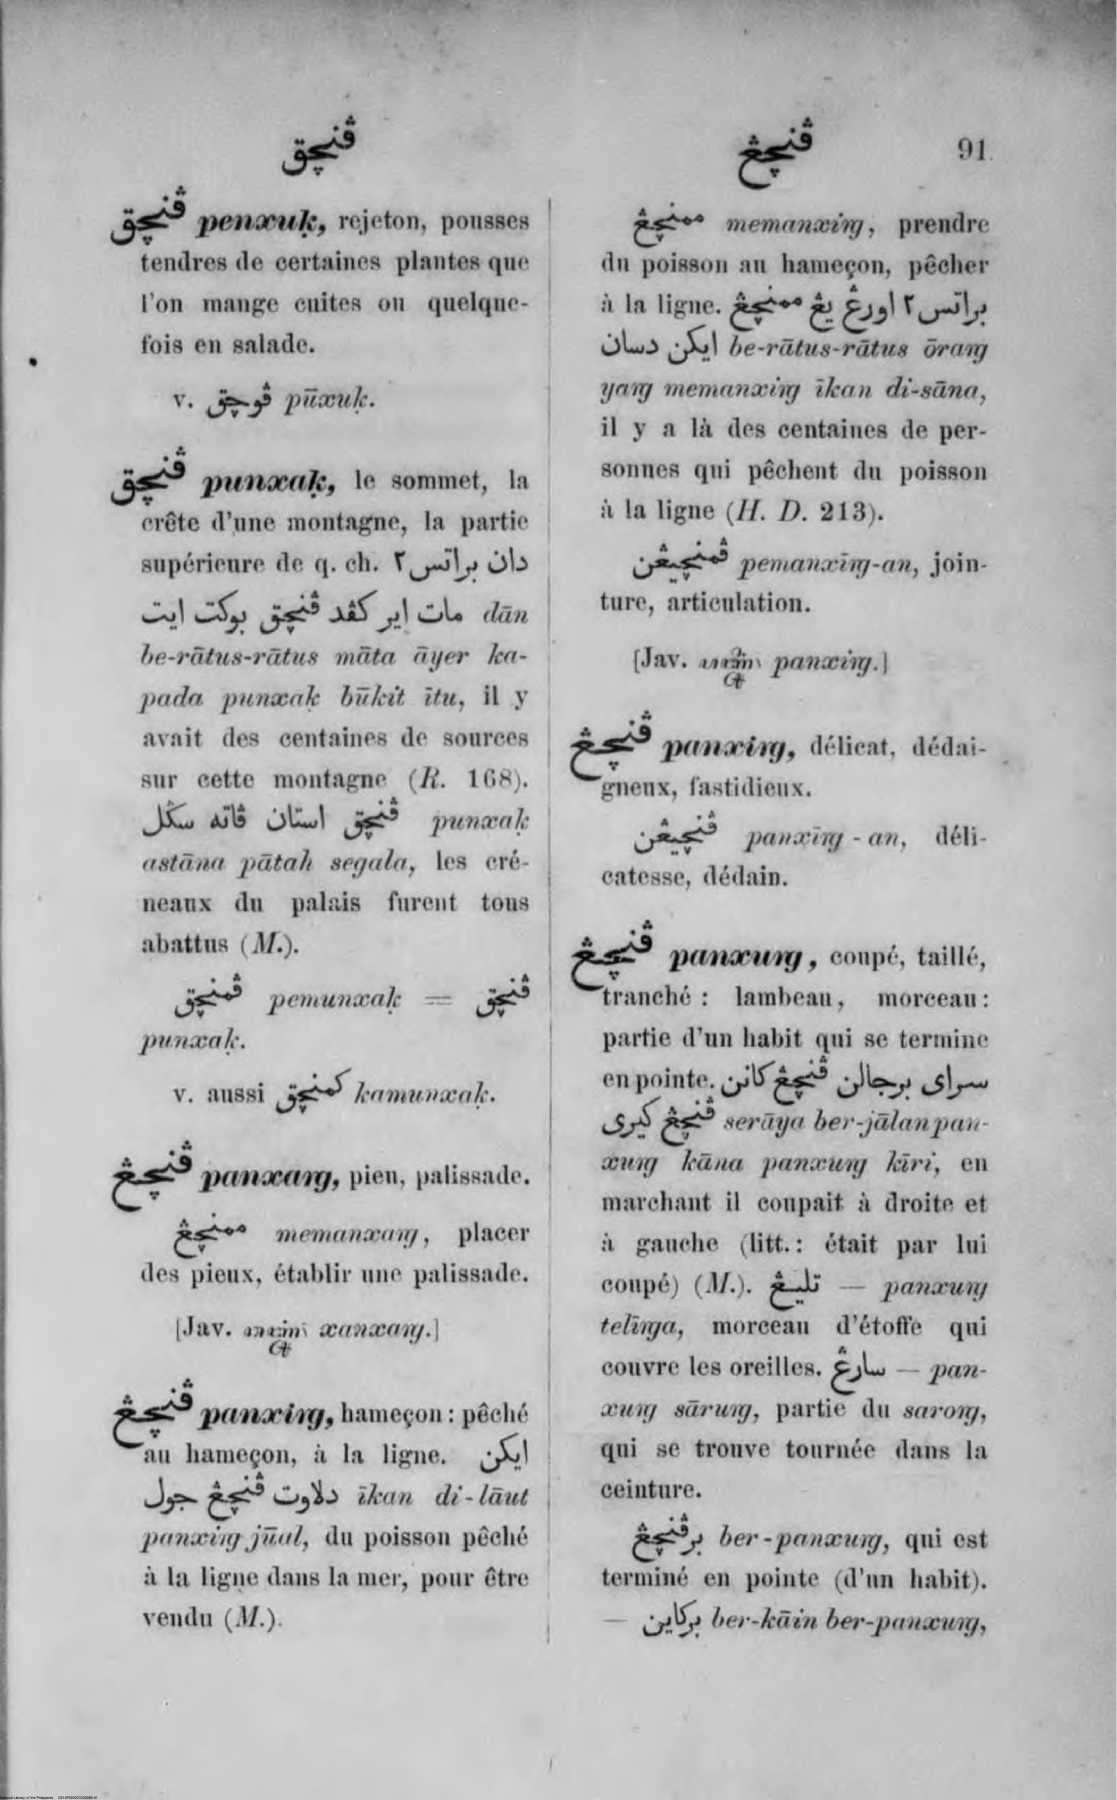 ڤنچق
ڤنچڠ
91
ڤنچق penxuḳ, rejeton, pousses
tendres de certaines plantes que
l'on mange cuites ou quelque-
fois en salade.
v. ڤوچق pūxuḳ.
ڤنچق punxaḳ, le sommet, la
crête d'une montagne, la partie
supérieure de q. ch. دان براتس٢
مات اير کڤد ڤنچق بوکت ايت dān
be-rātus-rātus māta āyer ka-
pada punxaḳ būkit ītu, il y
avait des centaines de sources
sur cette montagne (R. 168).
ڤنچق استان ڤاته سݢل punxaḳ
astāna pātah segala, les cré-
neaux du palais furent tous
abattus (M.).
ڤمنچق pemunxaḳ = ڤنچق
punxaḳ.
v. aussi کمنچق kamunxaḳ.
ڤنچڠ panxaṅg, pieu, palissade.
ممنچڠ memanxaṅg, placer
des pieux, établir une palissade.
[Jav. xanxaṅg.]
ڤنچڠ panxiṅg, hameçon: pêché
au hameçon, à la ligne. ايکن
دلاوت ڤنچڠ جول īkan di-lāut
panxiṅg jūal, du poisson pêché
à la ligne dans la mer, pour être
vendu (M.).
ممنچڠ memanxiṅg, prendre
du poisson au hameçon, pêcher
à la ligne. براتس٢ اورڠ يڠ ممنچڠ
ايکن دسان be-rātus-rātus ōraṅg
yaṅg memanxiṅg īkan di-sāna,
il y a là des centaines de per-
sonnes qui pêchent du poisson
à la ligne (H. D. 213).
ڤمنچيڠن pemanxīṅg-an, join-
ture, articulation.
[Jav. panxiṅg.]
ڤنچڠ panxiṅg, délicat, dédai-
gneux, fastidieux.
ڤنچيڠن panxīṅg-an, déli-
catesse, dédain.
ڤنچڠ panxuṅg, coupé, taillé,
tranché: lambeau, morceau:
partie d'un habit qui se termine
en pointe. سراي برجالن ڤنچڠ کانن
ڤنچڠ کيري serāya ber-jālan pan-
xuṅg kāna panxuṅg kīri, en
marchant il coupait à droite et
à gauche (litt.: était par lui
coupé) (M.). تليڠ — panxuṅg
telīṅga, morceau d'étoffe qui
couvre les oreilles. سارڠ — pan-
xuṅg sāruṅg, partie du saroṅg,
qui se trouve tournée dans la
ceinture.
برڤنچڠ ber-panxuṅg, qui est
terminé en pointe (d'un habit).
— برکاين ber-kāin ber-panxuṅg,